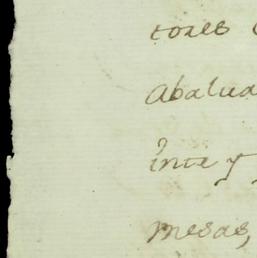 tores
Abalua
inte y
mesas,